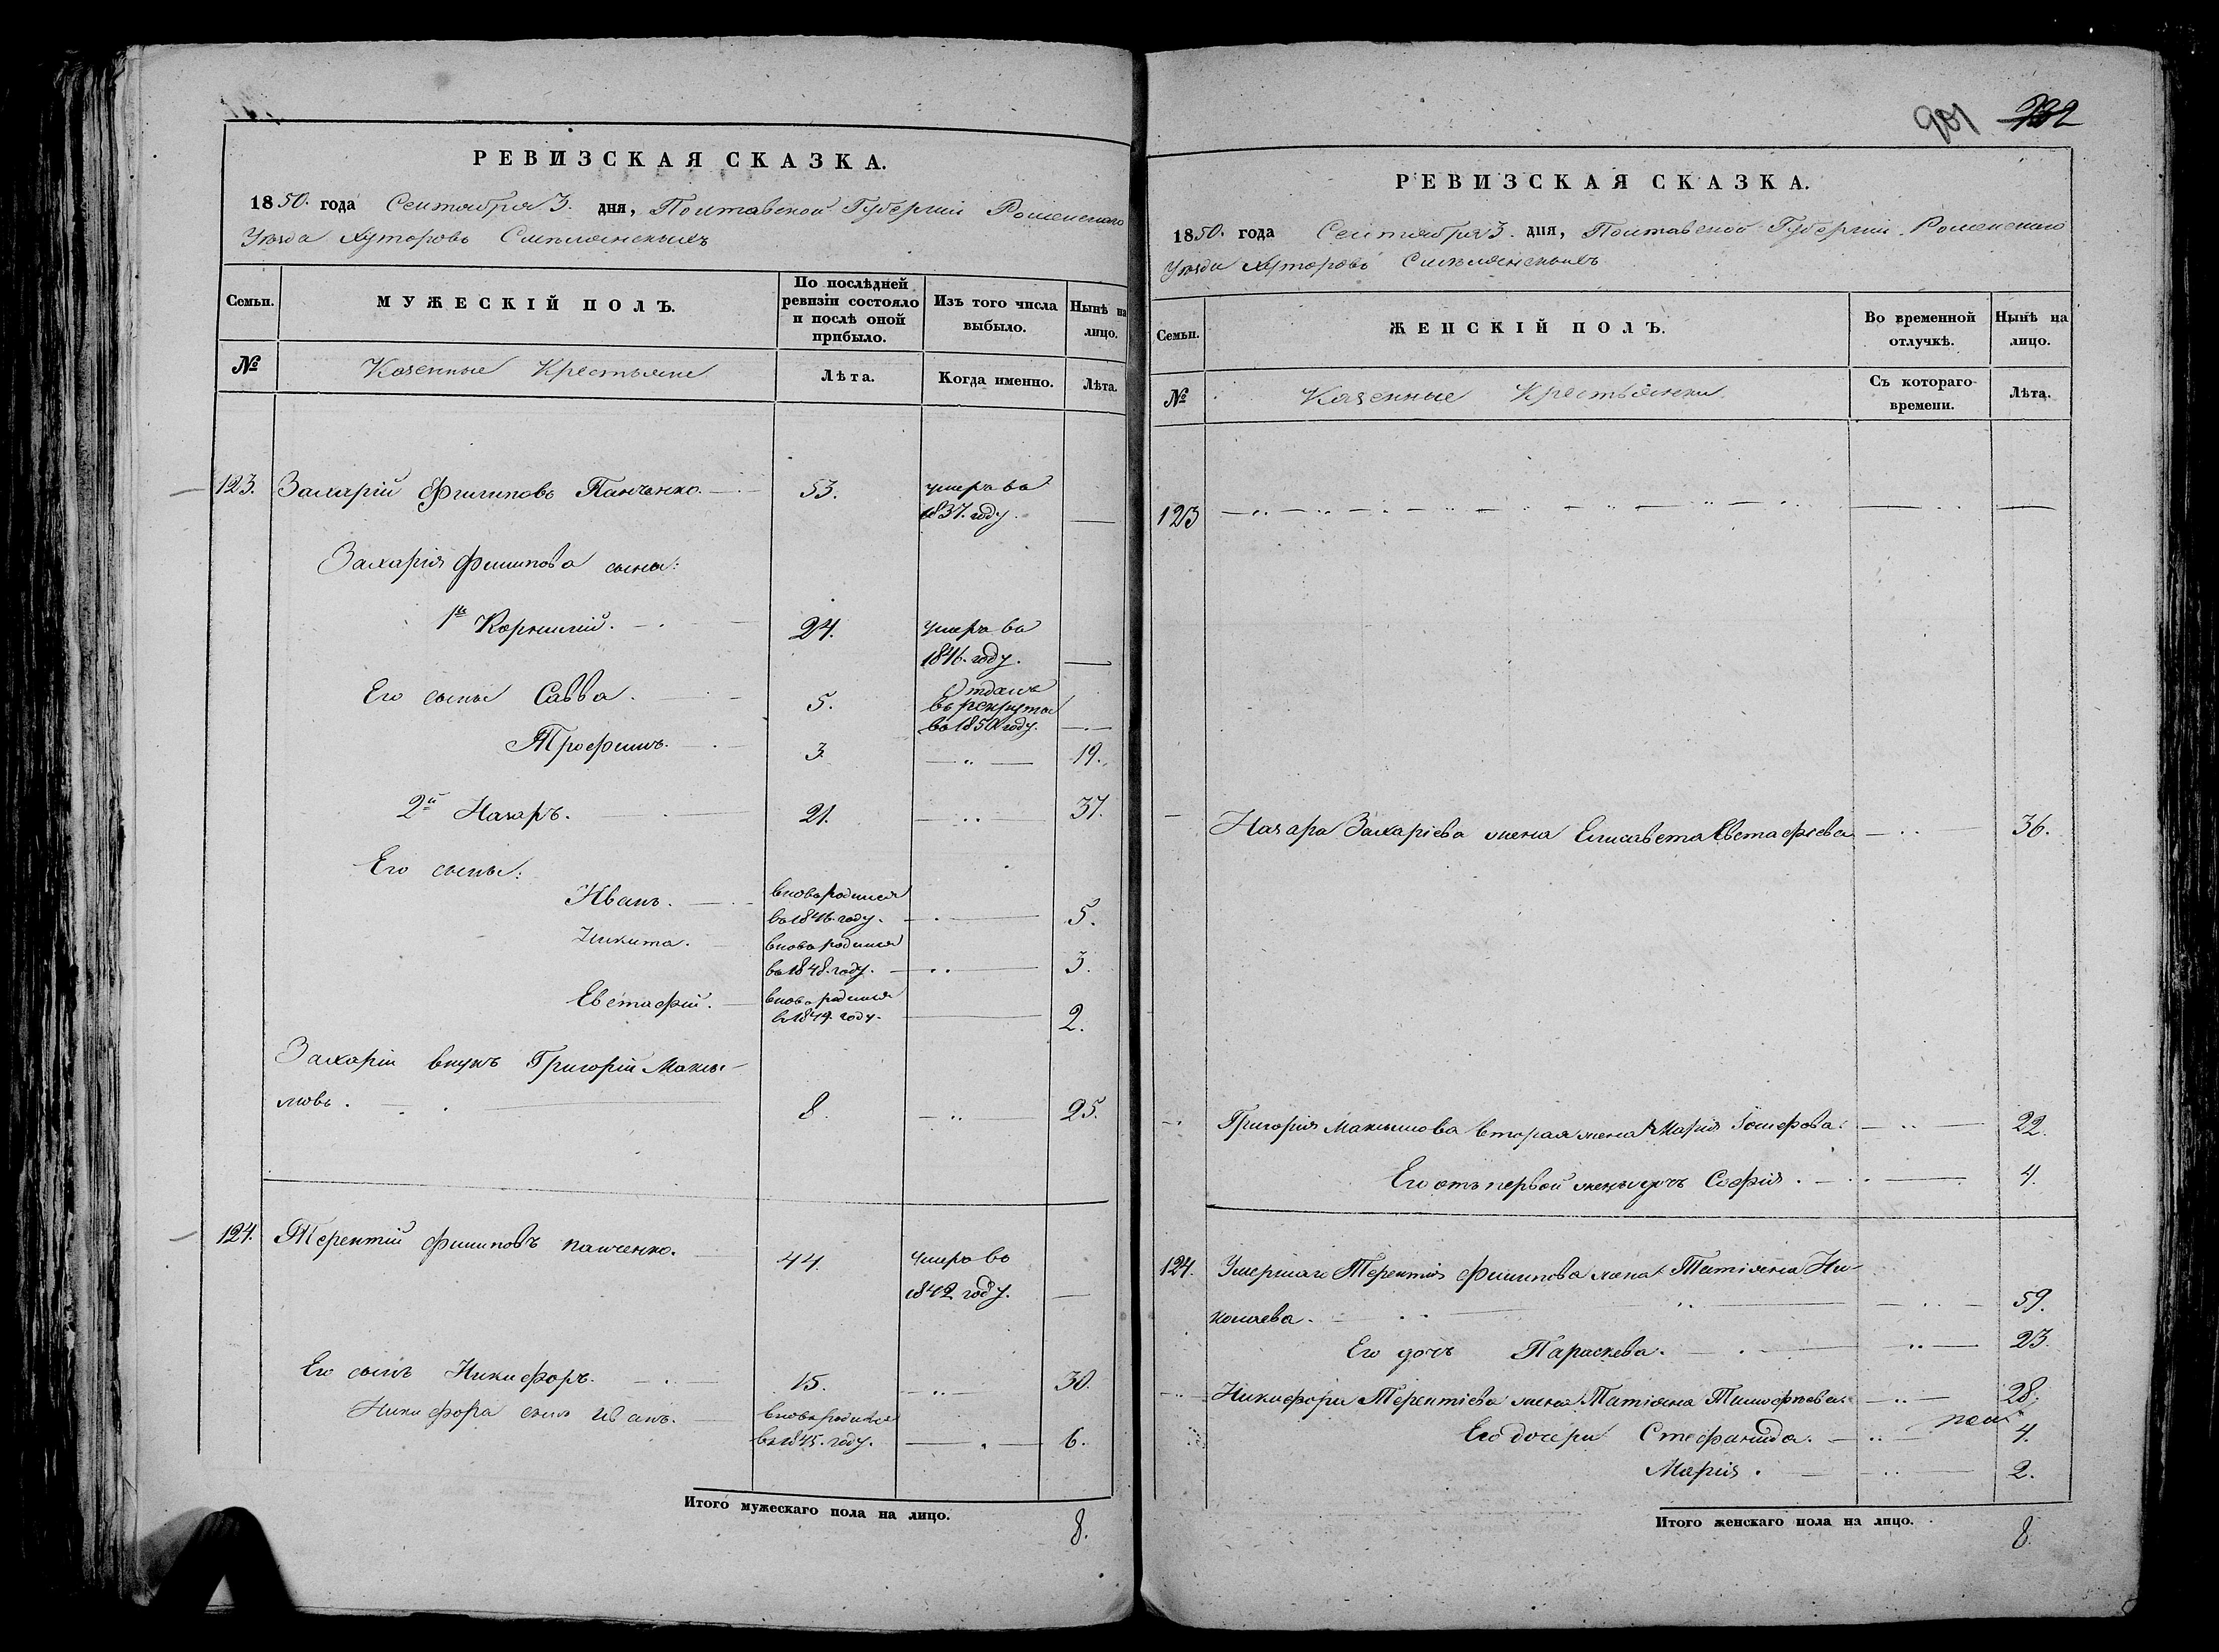 РЕВИЗСКАЯ СКАЗКА.
1850. года Сентября 3. дня, Полтавской Губернии Роменского
Уезда Хуторовъ Смелянскихъ
Семьи.
МУЖЕСКІЙ ПОЛЪ.
По послѣдней ревизіи состояло и послѣ оной прибыло.
Изъ того числа выбыло.
Нынѣ на лицо.
№
Казенные Крестьяне
Лѣта.
Когда именно.
Лѣта.
123. Захарій Филиповъ Панченко. 53. умеръ въ
1837. году.
Захарія Филипова сыны:
1й Корнилій. 24. умеръ въ
1846. году.
Его сыны Савва. 5. Отданъ
въ рекруты
въ 1850 году.
Трофимъ. 3. 19.
2й Назаръ. 21. 37.
Его сыны:
Иванъ. вновь родился
въ 1846. году. 5.
Никита. вновь родился
въ 1848. году. 3.
Евстафій. вновь родился
въ 1849. году. 2.
Захарія внукъ Григорій Максы-
мовъ. 8. 25.
124. Терентій Филиповъ Панченко. 44. Умеръ въ
1842 году.
Его сынъ Никифоръ. 15. 30.
Никифора сынъ Иванъ. вновь родился
въ 1845. году. 6.
Итого мужескаго пола на лицо. 8.
901 932
РЕВИЗСКАЯ СКАЗКА.
1850. года Сентября 3. дня, Полтавской Губернии Роменского
Уезда Хуторовъ Смелянскихъ
Семьи.
ЖЕНСКІЙ ПОЛЪ.
Во временной отлучкѣ.
Нынѣ на лицо.
№
Казенные Крестьянки
Съ котораго времени.
Лѣта.
123
Назара Захаріева жена Елисавета Евстафіева 36.
Григорія Максымова вторая жена Марія Іосифова. 22.
Его отъ первой жены дочь Софія. 4.
124. Умершаго Терентія Филипова жена Татіяна Ни-
колаева. 59.
Его дочь Параскева. 23.
Никифора Терентіева жена Татіяна Тимофѣева. 28.
Его дочери Стефанида. 4.
Марія. 2.
Итого женскаго пола на лицо. 8.